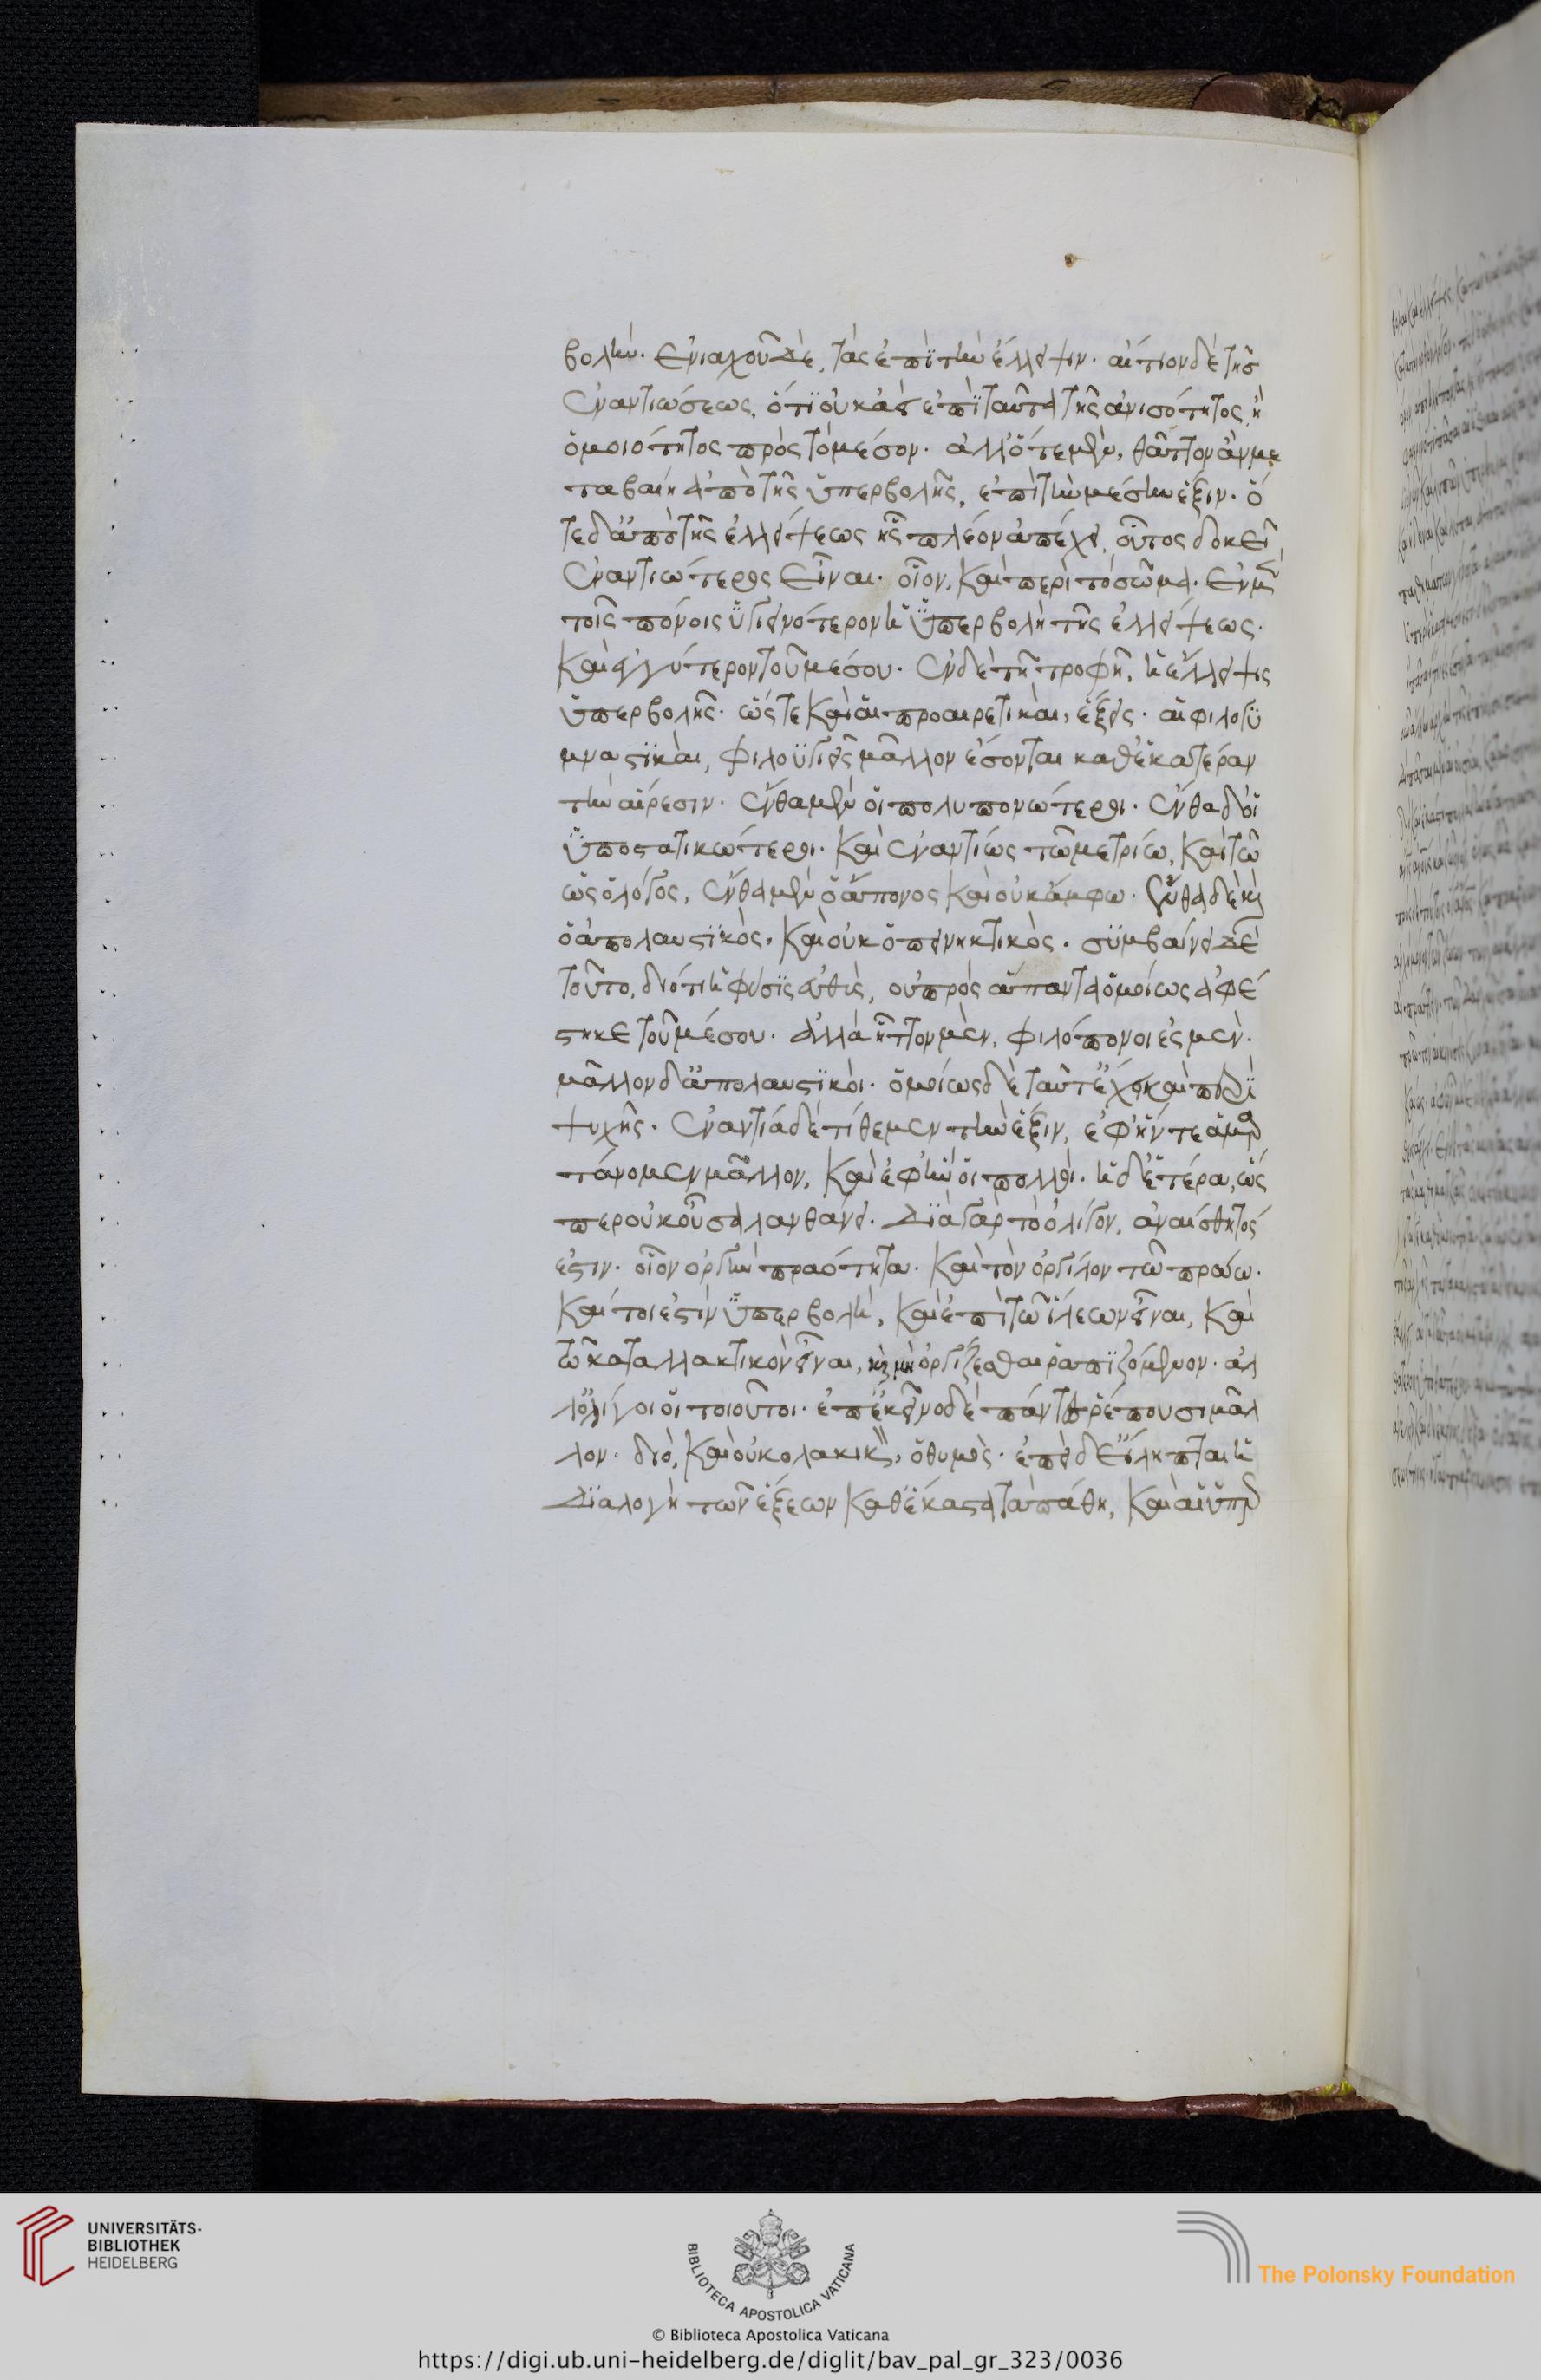 βολὴν. ἐνιαχοῦ δὲ, τὰς ἐπὶ τὴν ἔλλειψιν. αἴτιον δὲ τῆς
ἐναντιώσεως, ὅτι οὐκ ἀεὶ ἐπὶ ταὐτὰ τῆς ἀνισότητος ἢ
ὁμοιότητος πρὸς τὸ μέσον. ἀλλ' ὅτε μὲν, θᾶττον ἂν με
ταβαίη ἀπὸ τῆς ὑπερβολῆς, ἐπὶ τὴν μέσην ἕξιν. ὅ
τε δ' ἀπὸ τῆς ἐλλείψεως ἧς πλέον ἀπέχει, οὗτος δοκεῖ
ἐναντιώτερος εἶναι. οἷον, καὶ περὶ τὸ σῶμα. ἐν μὲν
τοῖς πόνοις ὑγιεινότερον ἡ ὑπερβολὴ τῆς ἐλλείψεως.
καὶ ἐγγύτερον τοῦ μέσου. ἐν δὲ τῇ τροφῇ, ἡ ἔλλειψις
ὑπερβολῆς. ὥστε καὶ αἱ προαιρετικαὶ, ἕξεις. αἱ φιλογυ
μναστικαὶ, φιλοϋγιεῖς μᾶλλον ἔσονται καθ' ἑκατέραν
τὴν αἵρεσιν. ἔνθα μὲν οἱ πολυπονώτεροι. ἔνθα δ' οἱ
ὑποστατικώτεροι. καὶ ἐναντίως τῶ μετρίω, καὶ τῶ
ὡς ὁ λόγος, ἔνθα μὲν ὁ ἄπονος καὶ οὐκ ἄμφω. ἔνθα δὲ καὶ
ὁ ἀπολαυστικὸς, καὶ οὐκ ὁ πεινητικὸς. συμβαίνει δὲ
τοῦτο, διότι ἡ φύσις εὐθὺς, οὐ πρὸς ἅπαντα ὁμοίως ἀφέ
στηκε τοῦ μέσου. ἀλλὰ ἧττον μὲν, φιλόπονοι ἐσμὲν.
μᾶλλον δ' ἀπολαυστικοὶ. ὁμοίως δὲ ταῦτ' ἔχει καὶ περὶ
ψυχῆς. ἐναντία δὲ τίθεμεν τὴν ἕξιν, ἐφ' ἥν τε ἁμαρ
τάνομεν μᾶλλον, καὶ ἐφ' ἣν οἱ πολλοὶ. ἡ δ' ἑτέρα, ὥς
περ οὐκ οὖσα λανθάνει. διὰ γὰρ τὸ ὀλίγον, ἀναίσθητός
ἐστιν. οἷον ὀργὴν πραότητα. καὶ τὸν ὀργίλον τῶ πράω.
καί τοι ἐστὶν ὑπερβολὴ, καὶ ἐπὶ τῶ ἵλεων εἶναι, καὶ
τῶ καταλλακτικὸν εἶναι, καὶ μὴ ὀργίζεσθαι ῥαπιζόμενον. ἀλ
λ' ὀλίγοι οἱ τοιοῦτοι. ἐπ' ἐκεῖνο δὲ πάντες ῥέπουσι μᾶλ
λον. διὸ, καὶ οὐ κολακικὸς, ὁ θυμὸς. ἐπεὶ δ' εἴληπται ἡ
διαλογὴ τῶν ἕξεων καθ' ἕκαστα τὰ πάθη, καὶ αἱ ὑπερ
UNIVERSITÄTS-
BIBLIOTHEK
HEIDELBERG
BIBLIOTECA APOSTOLICA VATICANA
The Polonsky Foundation
© Biblioteca Apostolica Vaticana
https://digi.ub.uni-heidelberg.de/diglit/bav_pal_gr_323/0036